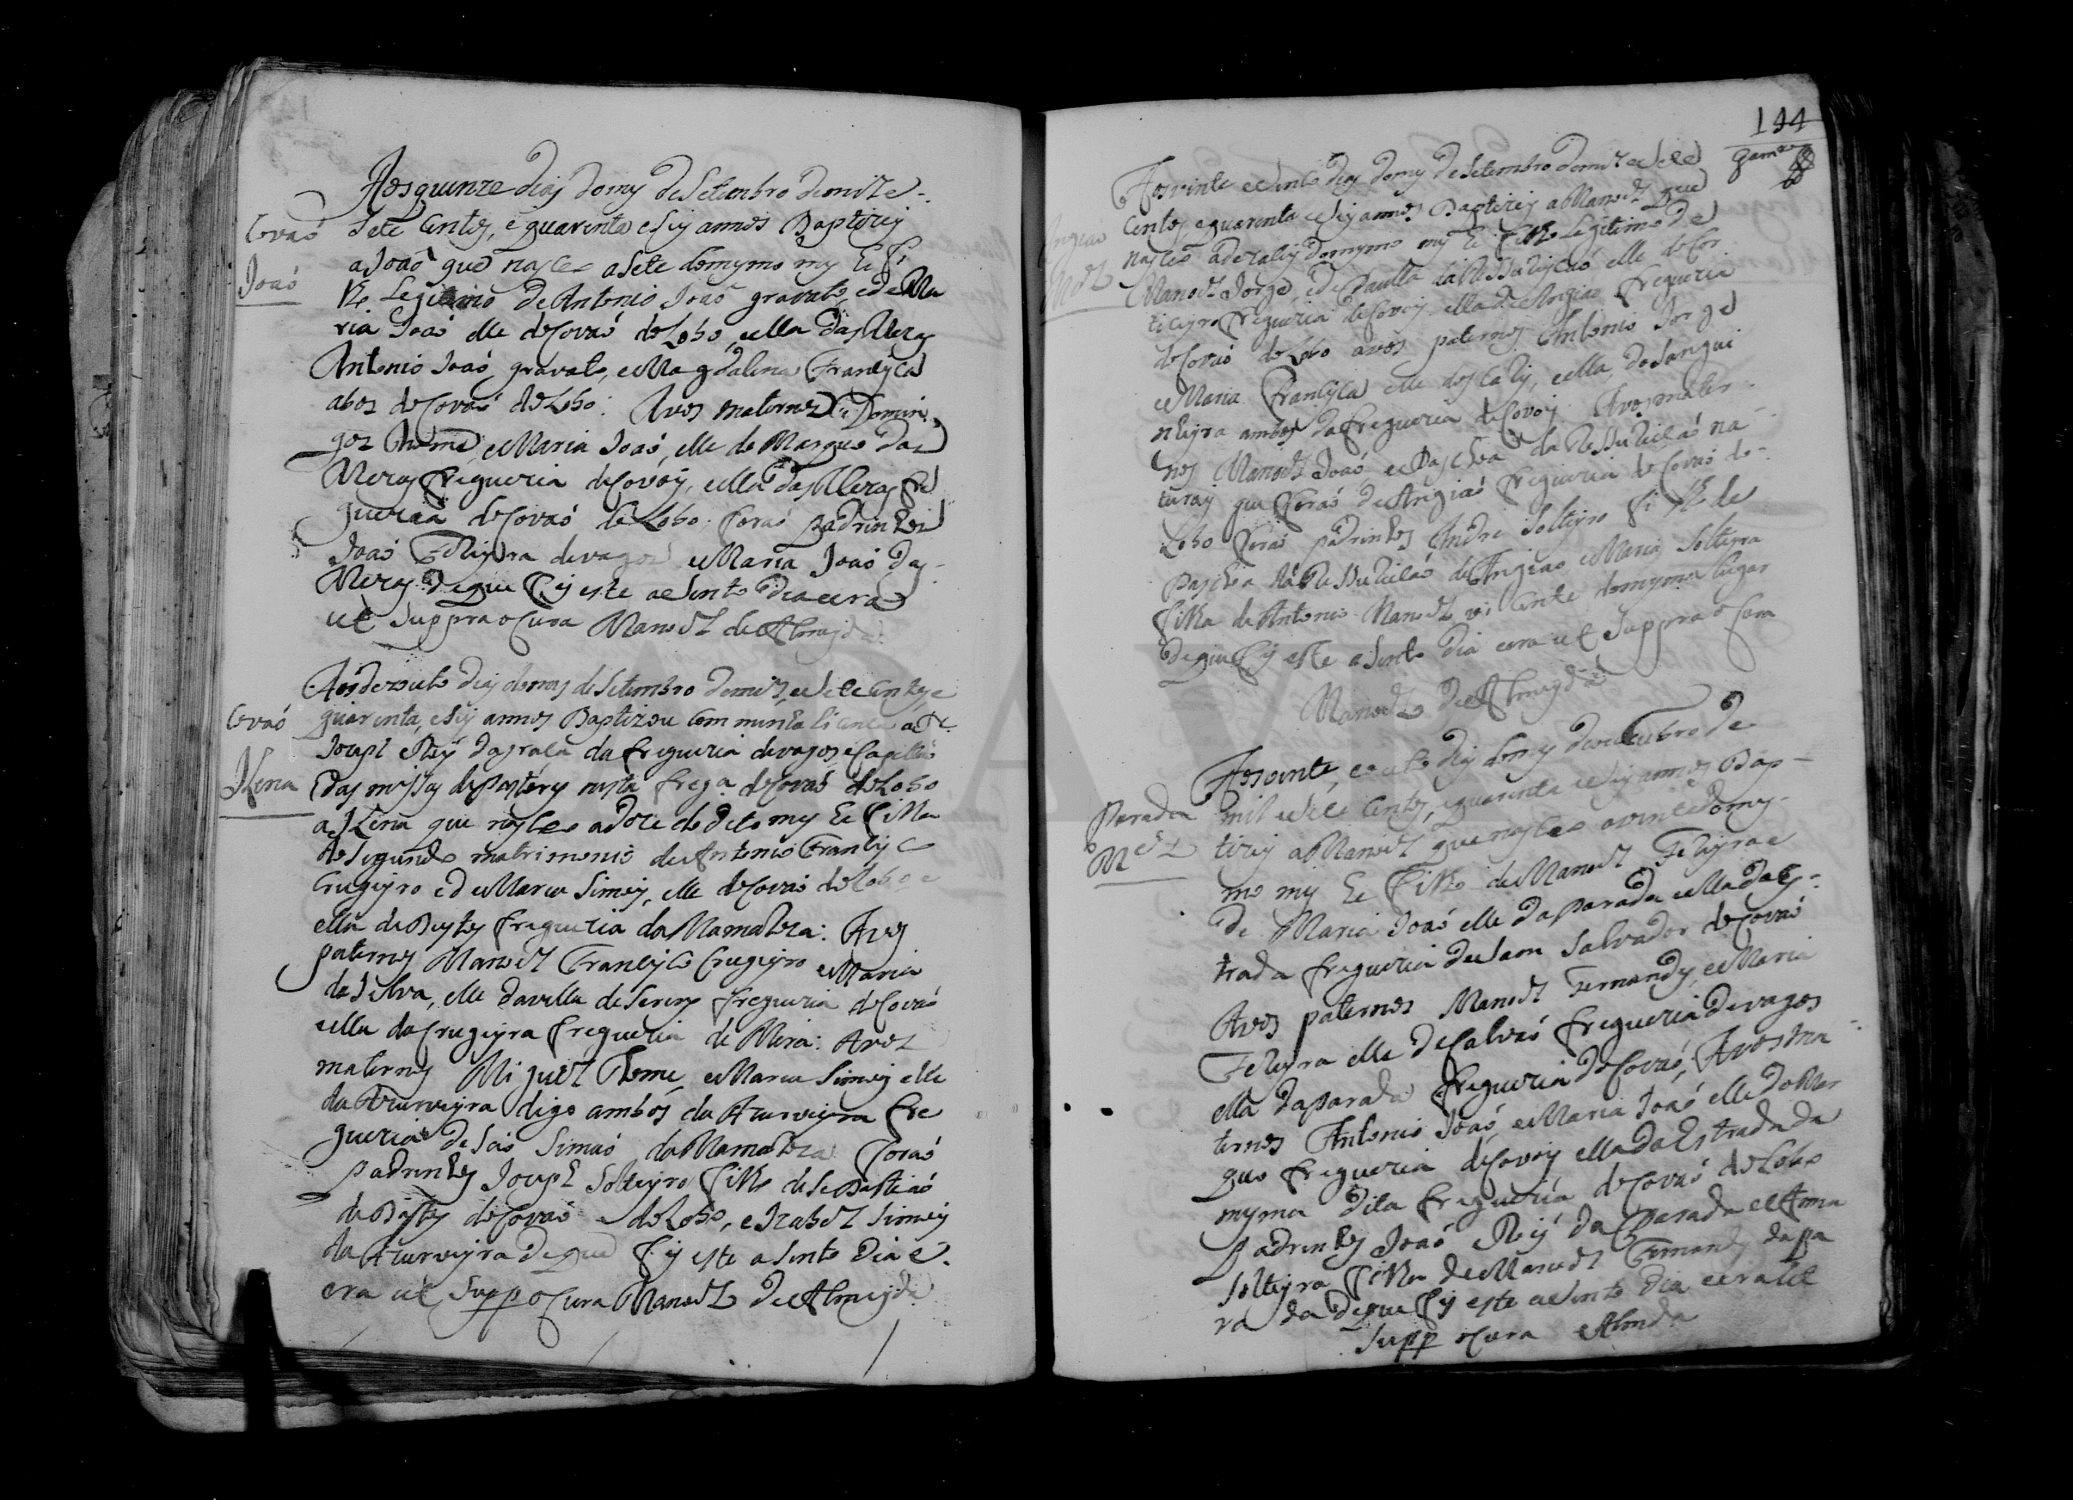 Aos quinze dias do mes de Setembro de mil e
sete centos, e quarenta e seis annos Baptizei
Covaó
a Joaó que nasceo a sete do mesmo mes he fi
Joaó
lho Legitimo de Antonio Joaó gravato, e de Ma
ria Joaó elle de Covaó do Lobo, e ella das Meras
Antonio Joaó gravato, e Magdalena Francisca
abos de Covaó do Lobo: Avos maternos Domin
gos Thome, e Maria Joaó, elle do Marquo das
Meras freguezia de Covoes, e ella das Meras fre
guezia de Covaó do Lobo: foraó padrinhos
Joaó de vagos e Maria Joaó das
Meras de que fis este asento dia e era
ut suppra o Cura Manoel de Almeyda
Aos dezouto dias do mes de Setembro de mil, e sete centos, e
Covaó
quarenta, e seis annos Baptizou com minha licença o Pe.
Joseph Reis da freguezia de vagos, e Capellaó
das missas de nesta frega. de Covaó do Lobo
Ilena
a Ilena que nasceo a doze do dito mes he filha
do Segundo matrimonio de Antonio Francisco
Crugeyro e de Maria Simois, elle de Covaó do Lobo e
ella de Bustos freguezia da Mamarosa: Avos
paternos Manoel Francisco Crugeyro e Maria
da Silva, elle da villa de Serem freguezia de Covaó
e ella da Crugeyra freguezia de Mira: Avos
maternos Miguel Thome, e Maria Simois elle
da Azurveyra digo ambos da Azurveyra fre
guezia de Saó Simaó da Mamarosa foraó
padrinhos Joseph Solteyro filho de Sebastiaó
de Bastos de Covaó do Lobo, e Izabel Simois
da Azurveyra de que fis este asento dia e
era ut supp o Cura Manoel de Almeyda
144
Gamra
Aos vinte e sinco dias do mes de Setembro de mil e sete
centos, e quarenta e seis annos Baptizei a Manoel que
Angiaó
nasceo a dezaseis do mesmo mes he filho Legitimo de
Mel
Manoel Jorge, e de Paulla da Ressureiçaó elle do Cor
ticeyro freguezia de Covoes, ella de Angiaó freguezia
de Covaó do Lobo avos paternos Antonio Jorge
e Maria Francisca elle dos Catis, e ella do Sangui
nheyra ambos da freguezia de Covois: Avos mater
nos Manoel Joaó, e Paschoa da Ressureiçaó na
turays que foraó de Angiaó freguezia de Covaó do
Lobo foraó padrinhos Andre Solteyro filho de
Paschoa da Ressureiçaó de Angiaó e Maria Solteyra
filha de Antonio Manoel vicente do mesmo lugar
de que fis este asento dia e era ut suppra o Cura
Manoel de Almeyda
Aos vinte, e outo dias do mes de outubro de
Parada
mil e sete centos, e quarenta e seis annos Bap
Mel
tizei a Manoel que nasceo a vinte do mes
mo mes he filho de Manoel e
de Maria Joaó elle da parada e ella da Es
trada freguezia de Sam Salvador de Covaó
Avos paternos Manoel Fernandes, e Maria
elle de Calvaó freguezia de vagos
ella da parada freguezia de Covaó; Avos ma
ternos Antonio Joaó, e Maria Joaó elle do Mar
quo freguezia de Covois ella da Estrada da
mesma dita freguezia de Covaó do Lobo
Padrinhos Joaó Reis da Parada e Anna
Solteyra filha de Manoel Fernandes da pa
rada de que fis este asento dia e era ut
supp o Cura Almda